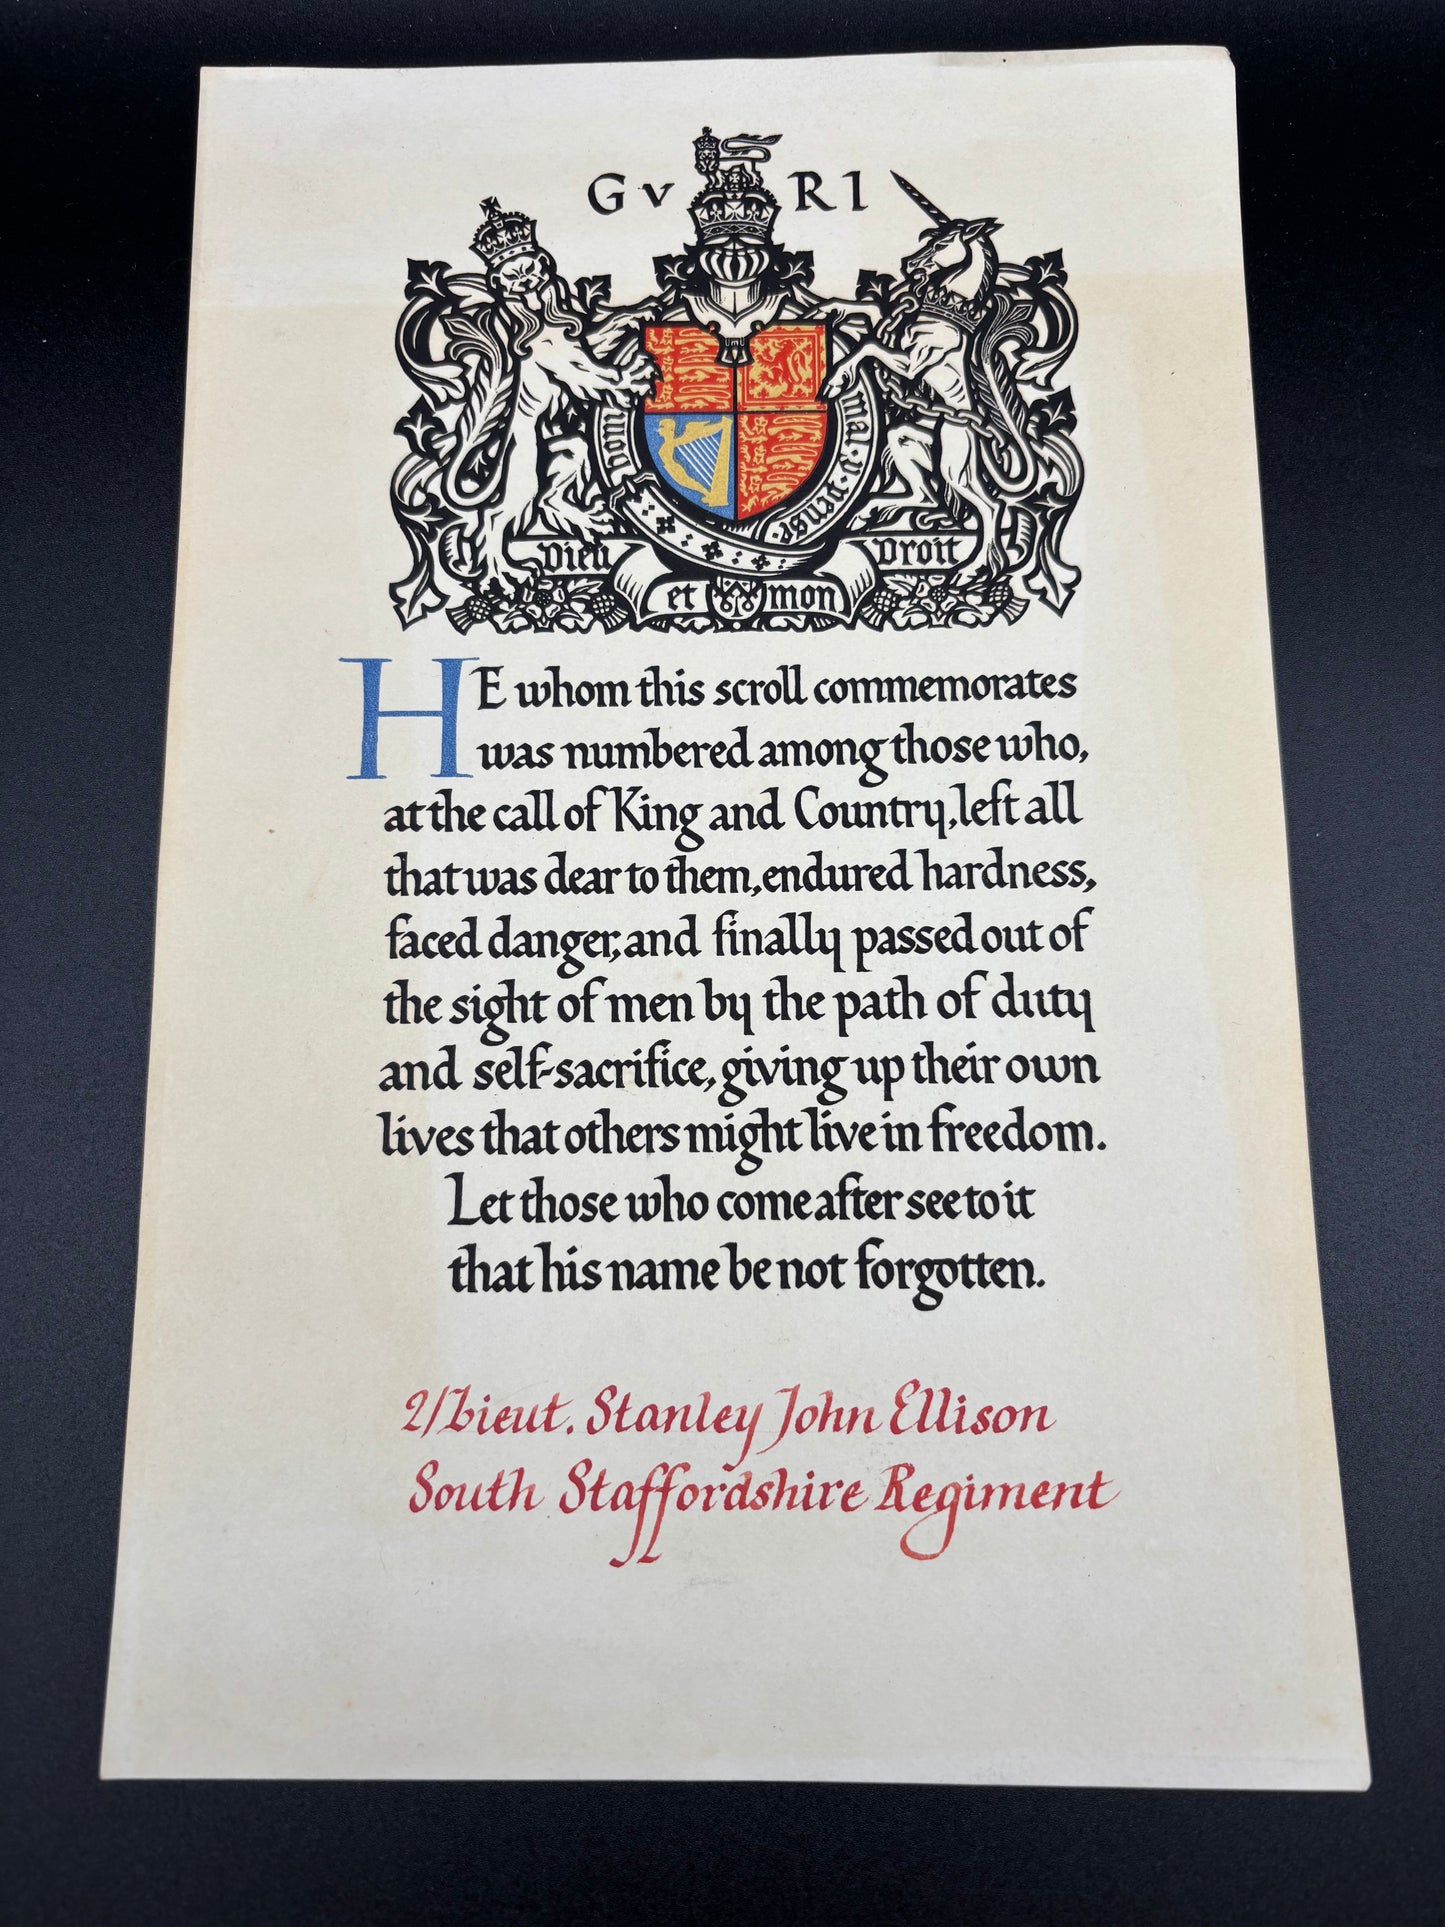 GV RI
Honi soit qui mal y pense
Dieu et mon Droit
HE whom this scroll commemorates
was numbered among those who,
at the call of King and Country, left all
that was dear to them, endured hardness,
faced danger, and finally passed out of
the sight of men by the path of duty
and self-sacrifice, giving up their own
lives that others might live in freedom.
Let those who come after see to it
that his name be not forgotten.
2/Lieut. Stanley John Ellison
South Staffordshire Regiment